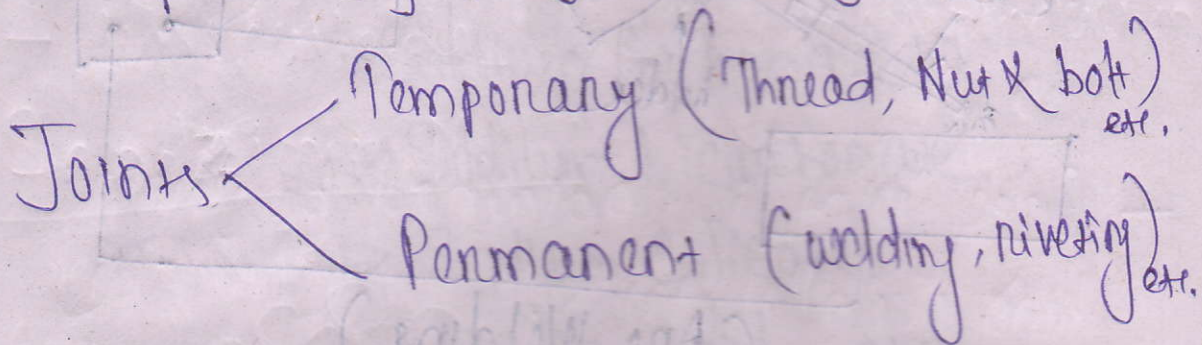 Joints
Temporary (Thread, Nut & bolt)
etc.
Permanent (welding, riveting)
etc.